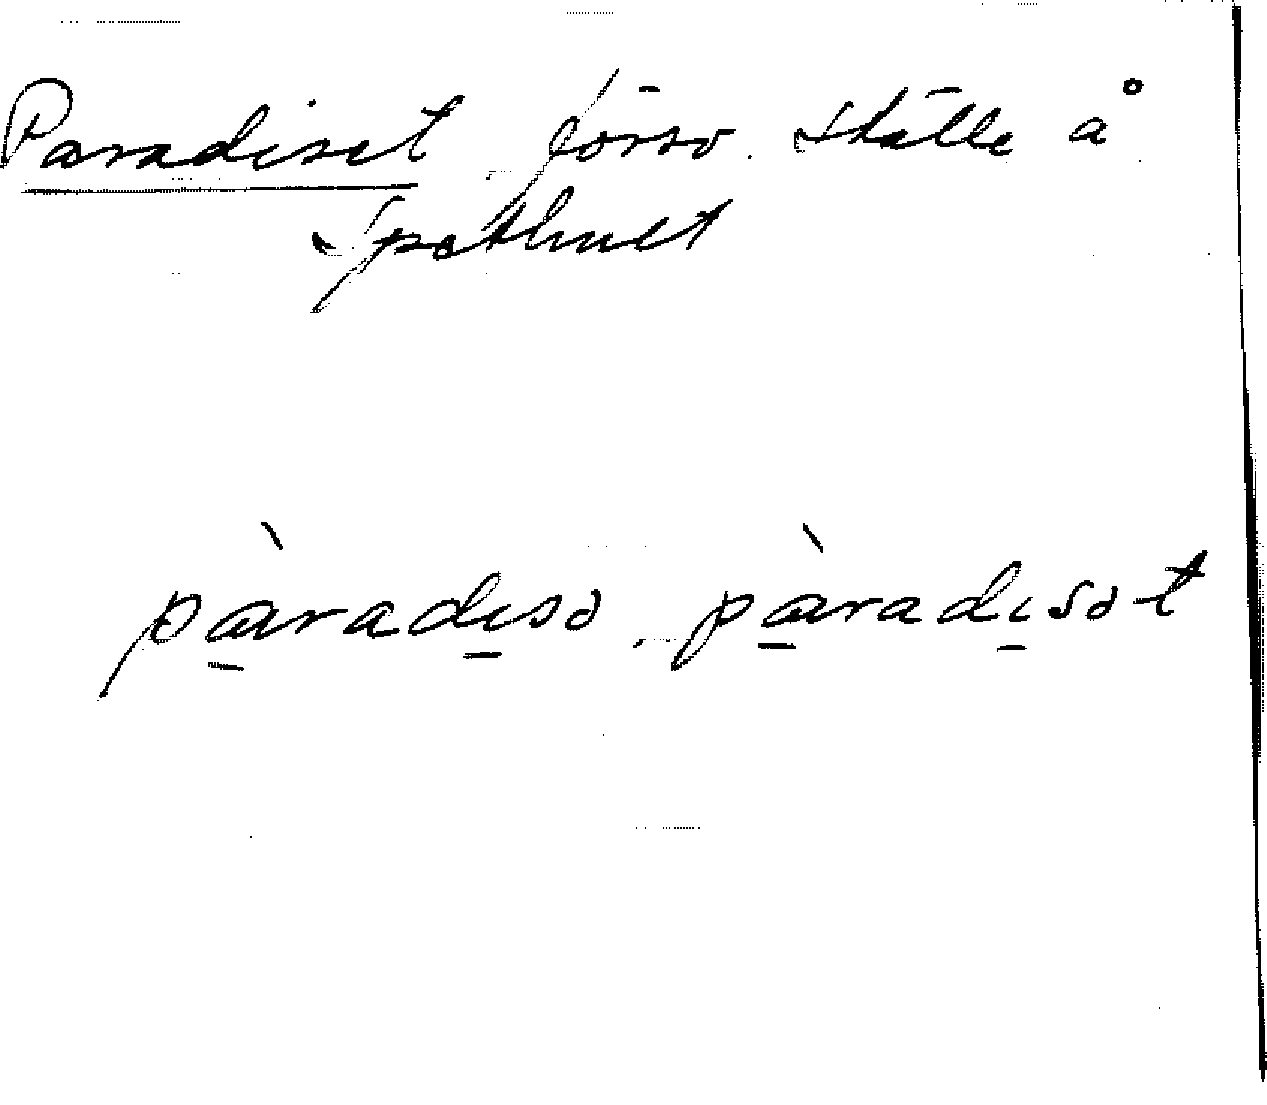 Paradiset försv. ställe å
Spathult
pàradisə, pàradisət